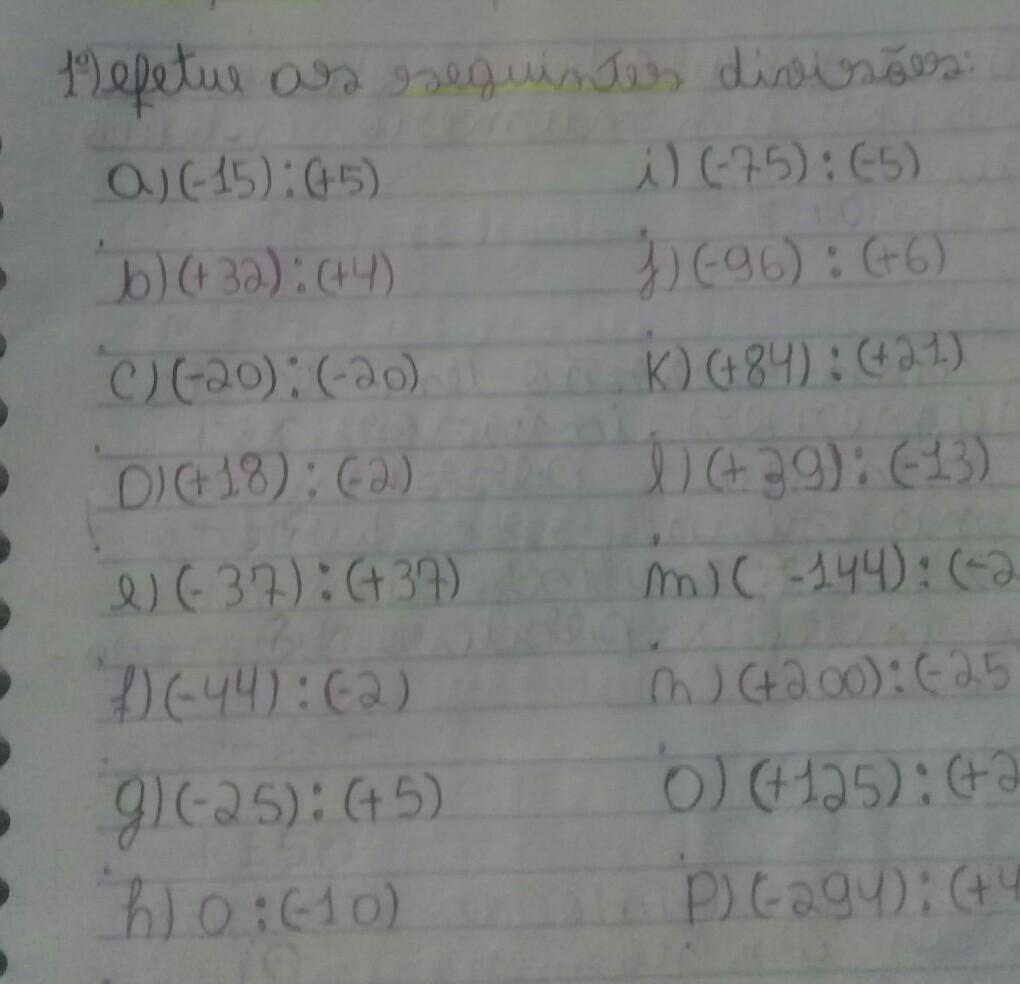 1º) efetue as seguintes divisões:
a) (-15) : (+5)
b) (+32) : (+4)
c) (-20) : (-20)
D) (+18) : (-2)
e) (-37) : (+37)
f) (-44) : (-2)
g) (-25) : (+5)
h) 0 : (-10)
i) (-75) : (-5)
j) (-96) : (+6)
K) (+84) : (+21)
l) (+39) : (-13)
m) ( -144) : (-2
n) (+200) : (-25
o) (+125) : (+2
p) (-294) : (+4